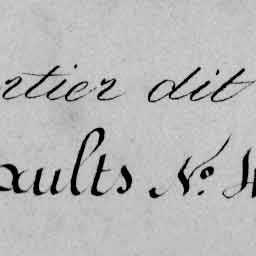 rtier dit
aults N.o 4